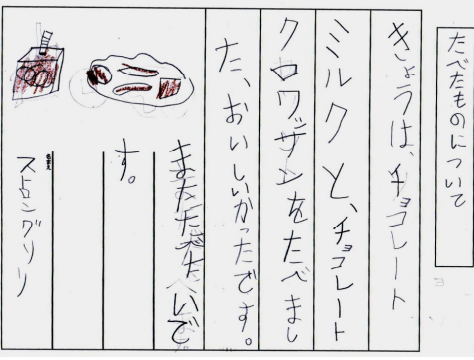 たべたものについて
きょうは、チョコレート
ミルクと、チョコレート
クロワッサンをたべまし
た、おいしいかったです。
またたべたいで
す。
名まえ
ストロングリリ